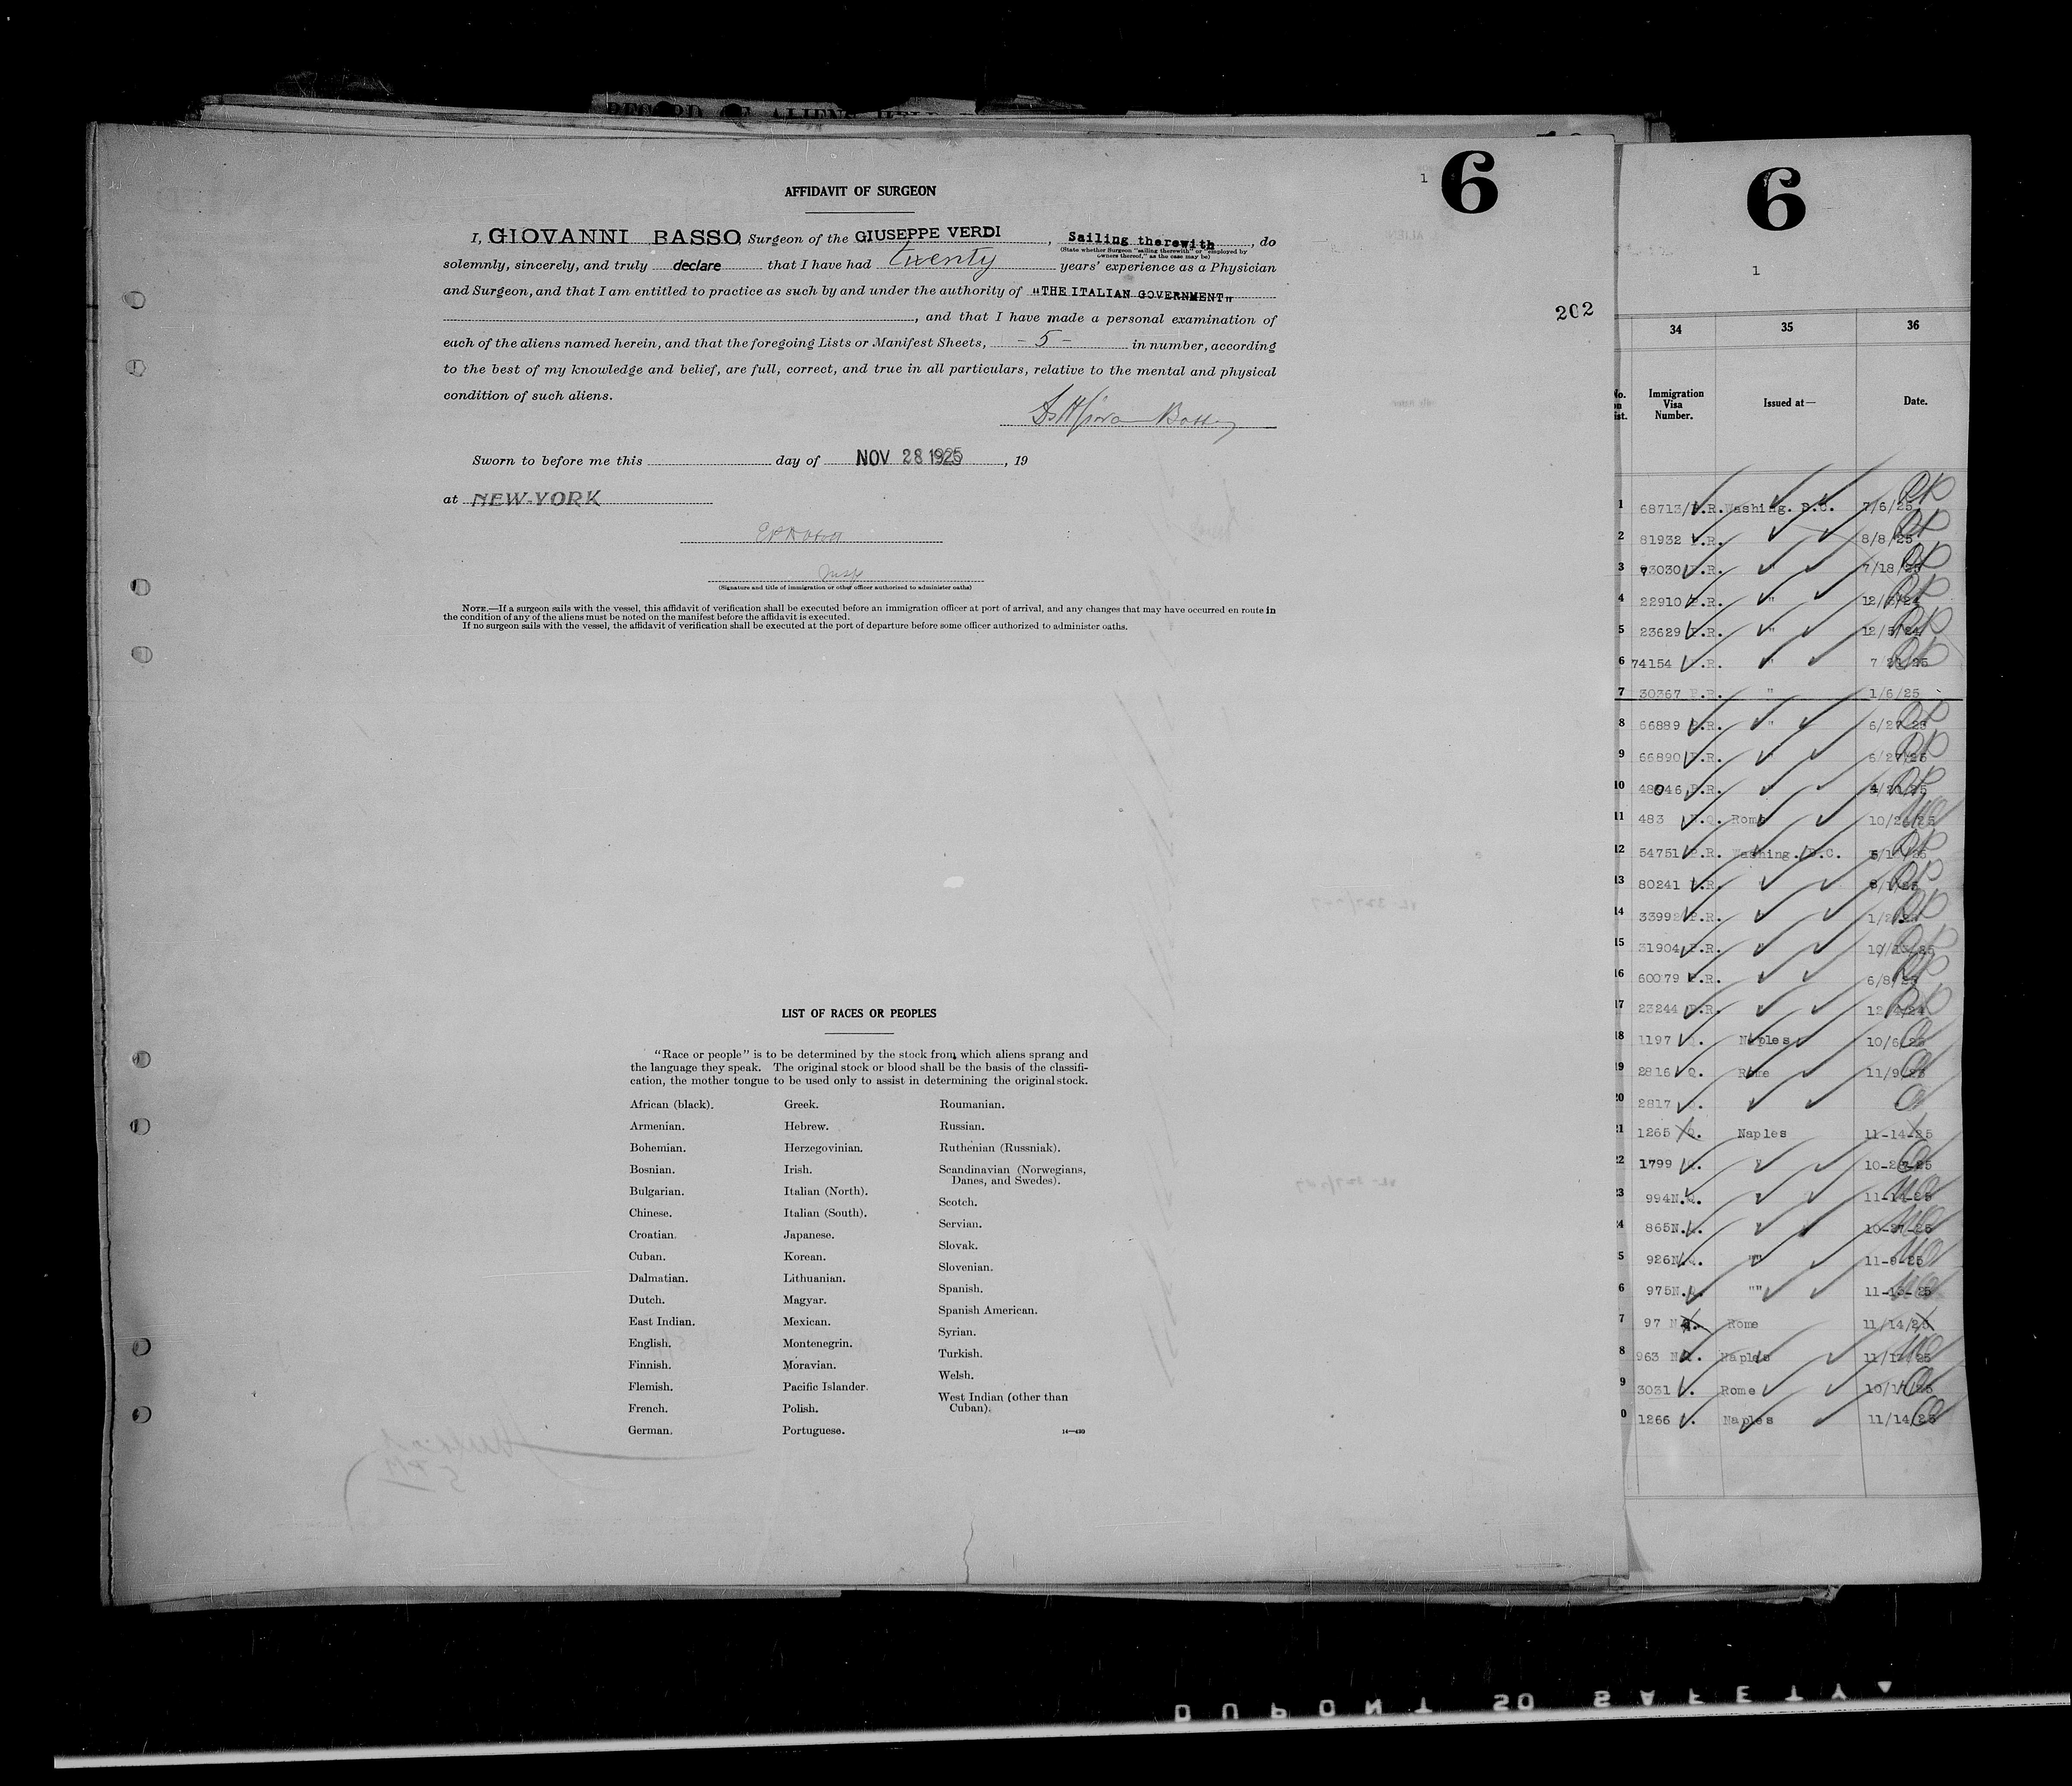 RECORD OF ALIENS HELD
6
1
AFFIDAVIT OF SURGEON
I, GIOVANNI BASSO, Surgeon of the GIUSEPPE VERDI, Sailing therewith, do
(State whether Surgeon "sailing therewith" or "employed by
owners thereof," as the case may be)
solemnly, sincerely, and truly declare that I have had twenty years' experience as a Physician
and Surgeon, and that I am entitled to practice as such by and under the authority of "THE ITALIAN GOVERNMENT"
, and that I have made a personal examination of
each of the aliens named herein, and that the foregoing Lists or Manifest Sheets, - 5 - in number, according
to the best of my knowledge and belief, are full, correct, and true in all particulars, relative to the mental and physical
condition of such aliens.
202
Basso
Sworn to before me this day of NOV 28 1925, 19
at NEW-YORK
(Signature and title of immigration or other officer authorized to administer oaths)
NOTE.—If a surgeon sails with the vessel, this affidavit of verification shall be executed before an immigration officer at port of arrival, and any changes that may have occurred en route in
the condition of any of the aliens must be noted on the manifest before the affidavit is executed.
If no surgeon sails with the vessel, the affidavit of verification shall be executed at the port of departure before some officer authorized to administer oaths.
LIST OF RACES OR PEOPLES
"Race or people" is to be determined by the stock from which aliens sprang and
the language they speak. The original stock or blood shall be the basis of the classifi-
cation, the mother tongue to be used only to assist in determining the original stock.
African (black).
Armenian.
Bohemian.
Bosnian.
Bulgarian.
Chinese.
Croatian.
Cuban.
Dalmatian.
Dutch.
East Indian.
English.
Finnish.
Flemish.
French.
German.
Greek.
Hebrew.
Herzegovinian.
Irish.
Italian (North).
Italian (South).
Japanese.
Korean.
Lithuanian.
Magyar.
Mexican.
Montenegrin.
Moravian.
Pacific Islander.
Polish.
Portuguese.
Roumanian.
Russian.
Ruthenian (Russniak).
Scandinavian (Norwegians,
Danes, and Swedes).
Scotch.
Servian.
Slovak.
Slovenian.
Spanish.
Spanish American.
Syrian.
Turkish.
Welsh.
West Indian (other than
Cuban).
14—430
6
1
34 35 36
No. on List. Immigration Visa Number. Issued at— Date.
1 68713/P.R. Washing. D.C. 7/6/25
2 81932 P.R. 8/8/25
3 73030 P.R. " 7/18/25
4 22910 P.R. "
5 23629 P.R. " 12/5/24
6 74154 P.R. "
7 30367 P.R. " 1/6/25
8 66889 P.R. " 6/27/25
9 66890 P.R. " 6/27/25
10 48046 P.R.
11 483 Rome
12 54751 P.R. Washing. D.C.
13 80241 P.R. 8/1/25
14 33992 P.R.
15 31904 P.R. "
16 60079 P.R. 6/8/25
17 23244 P.R. 12/4/24
18 1197 Naples 10/6/25
19 2816 Q. Rome 11/9/25
20 2817
21 1265 Q. Naples 11-14-25
22 1799 Q. "
23 994N.Q. 11-14-25
24 865N.Q. 10-27-25
25 926N.Q. "" 11-9-25
26 975N.Q. ""
27 97 N.Q. Rome 11/14/25
28 963 N.Q. Naples
29 3031 Rome
30 1266 Naples 11/14/25
DUPONT SO SAFETY